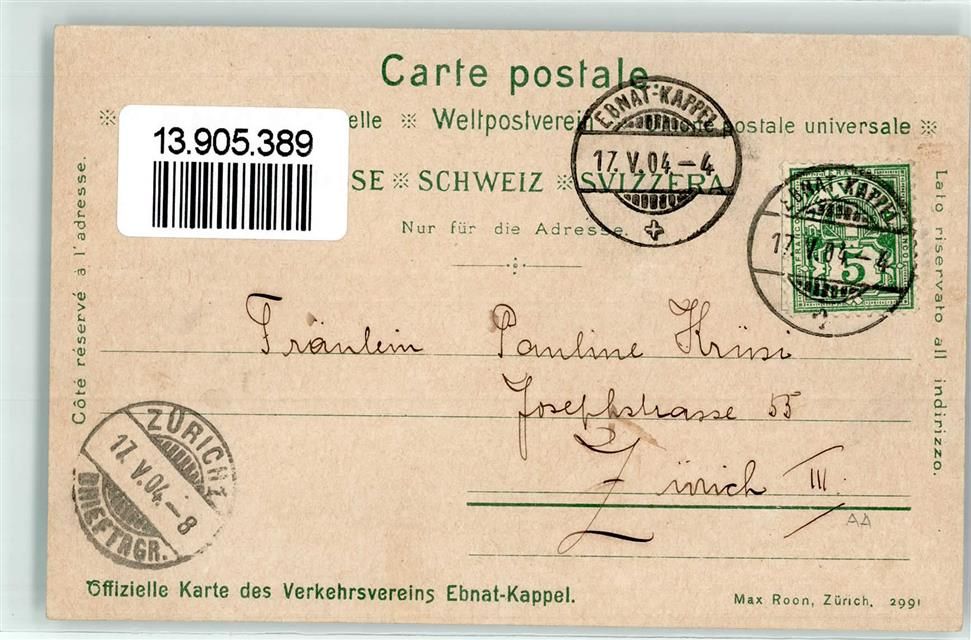 Carte postale
13.905.389
elle ※ Weltpostverein postale universale ※
SE ※ SCHWEIZ ※ SVIZZERA
Nur für die Adresse.
EBNAT-KAPPEL
17.V.04.–4
EBNAT-KAPPEL
17.V.04.–4
FRANCO
5
Côté réservé à l'adresse.
Lato riservato all indirizzo.
Fräulein Pauline Krüsi
Josephstrasse 55
Zürich III.
AA
ZÜRICH 1
17.V.04.–8
BRIEFTRGR.
Offizielle Karte des Verkehrsvereins Ebnat-Kappel.
Max Roon, Zürich. 2991